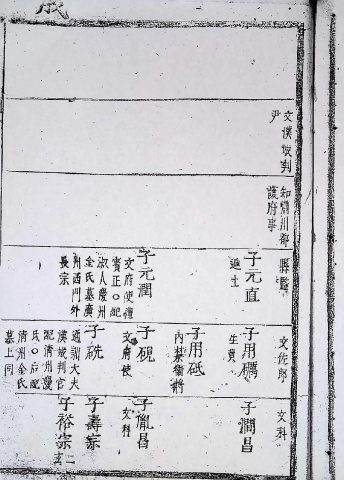 文漢城判
尹
知襄川都
護府事
縣監
子元直
進士
子元潤
文府使禮
賓正○配
淑人慶州
金氏墓廣
州西門外
長宗
文佐郎
子用礪
生員
子用砥
內禁衛將
子硯
文府使
子硄
通訓大夫
漢城判官
配清州
氏○后配
清州金氏
墓上同
文科
子潤昌
子胤昌
文科
子壽宗
子裕宗
二
玄